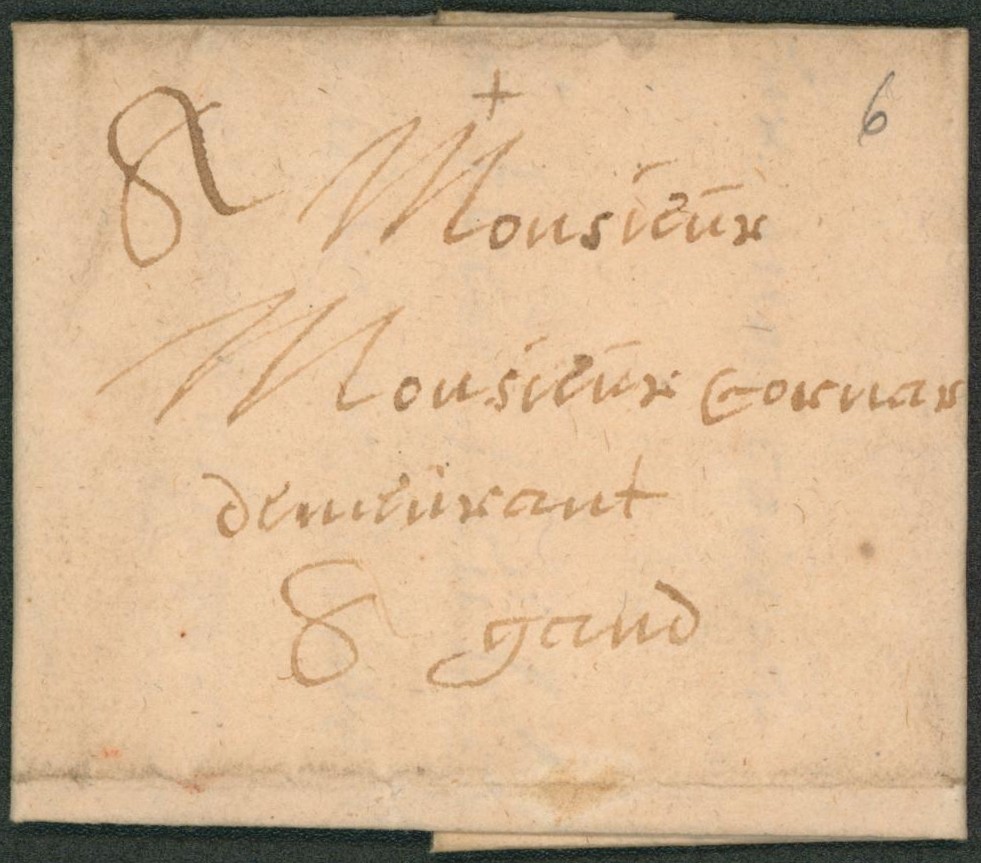 + 6
A Monsieur
Monsieur Cornar
demeurant
A gand